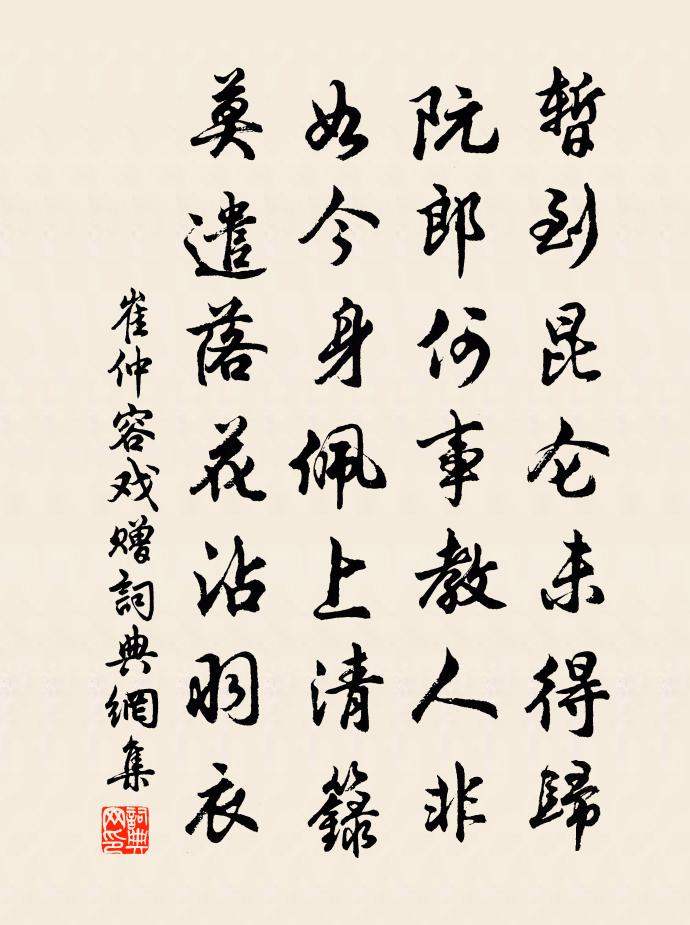 暫到昆仑未得歸
阮郎何事教人非
如今身佩上清籙
莫遣落花沾羽衣
崔仲容戏赠詞典網集
詞典网印